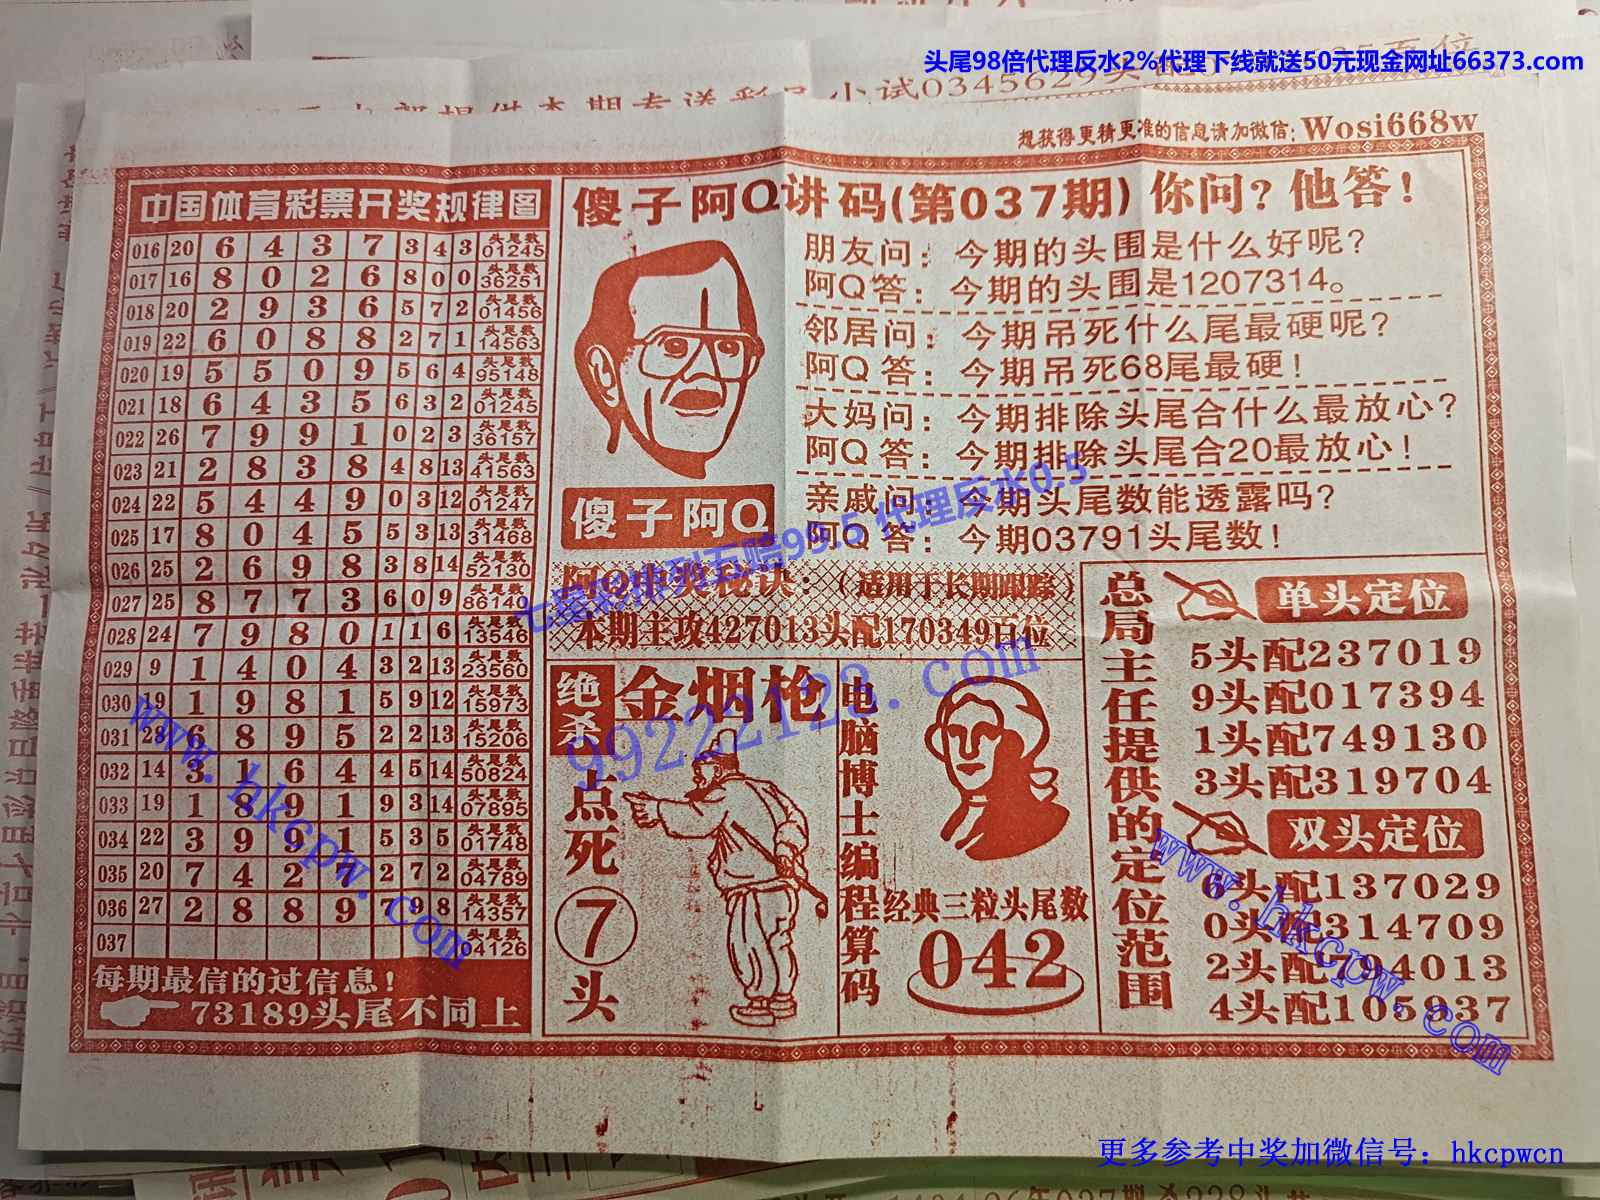 头尾98倍代理反水2%代理下线就送50元现金网址66373.com
想获得更精更准的信息请加微信:Wosi668w
中国体育彩票开奖规律图
016 20 6 4 3 7 3 4 3 头尾数01245
017 16 8 0 2 6 8 0 0 头尾数36251
018 20 2 9 3 6 5 7 2 头尾数01456
019 22 6 0 8 8 2 7 1 头尾数14563
020 19 5 5 0 9 5 6 4 头尾数95148
021 18 6 4 3 5 6 3 2 头尾数01245
022 26 7 9 9 1 0 2 3 头尾数36157
023 21 2 8 3 8 4 8 13 头尾数41563
024 22 5 4 4 9 0 3 12 头尾数01247
025 17 8 0 4 5 5 3 13 头尾数31468
026 25 2 6 9 8 3 8 14 头尾数52130
027 25 8 7 7 3 6 0 9 头尾数86140
028 24 7 9 8 0 1 1 6 头尾数13546
029 9 1 4 0 4 3 2 13 头尾数23560
030 19 1 9 8 1 5 9 12 头尾数15973
031 28 6 8 9 5 2 2 13 头尾数15206
032 14 3 1 6 4 4 5 14 头尾数50824
033 19 1 8 9 1 9 3 14 头尾数07895
034 22 3 9 9 1 5 3 5 头尾数01748
035 20 7 4 2 7 2 7 2 头尾数04789
036 27 2 8 8 9 7 9 8 头尾数14357
037 头尾数04126
每期最信的过信息!
73189头尾不同上
傻子阿Q讲码(第037期)你问?他答!
朋友问:今期的头围是什么好呢?
阿Q答:今期的头围是1207314。
邻居问:今期吊死什么尾最硬呢?
阿Q答:今期吊死68尾最硬!
大妈问:今期排除头尾合什么最放心?
阿Q答:今期排除头尾合20最放心!
亲戚问:今期头尾数能透露吗?
阿Q答:今期03791头尾数!
傻子阿Q
阿Q中奖秘诀:(适用于长期跟踪)
本期主攻427013头配170349百位
绝杀 金烟枪
点死⑦头
电脑博士编程算码
经典三粒头尾数
042
总局主任提供的定位范围
单头定位
5头配237019
9头配017394
1头配749130
3头配319704
双头定位
6头配137029
0头配314709
2头配794013
4头配105937
七星彩排列五赔99.5 代理反水0.5
99222123.com
www.hkcpw.com
www.hkcpw.com
更多参考中奖加微信号:hkcpwcn